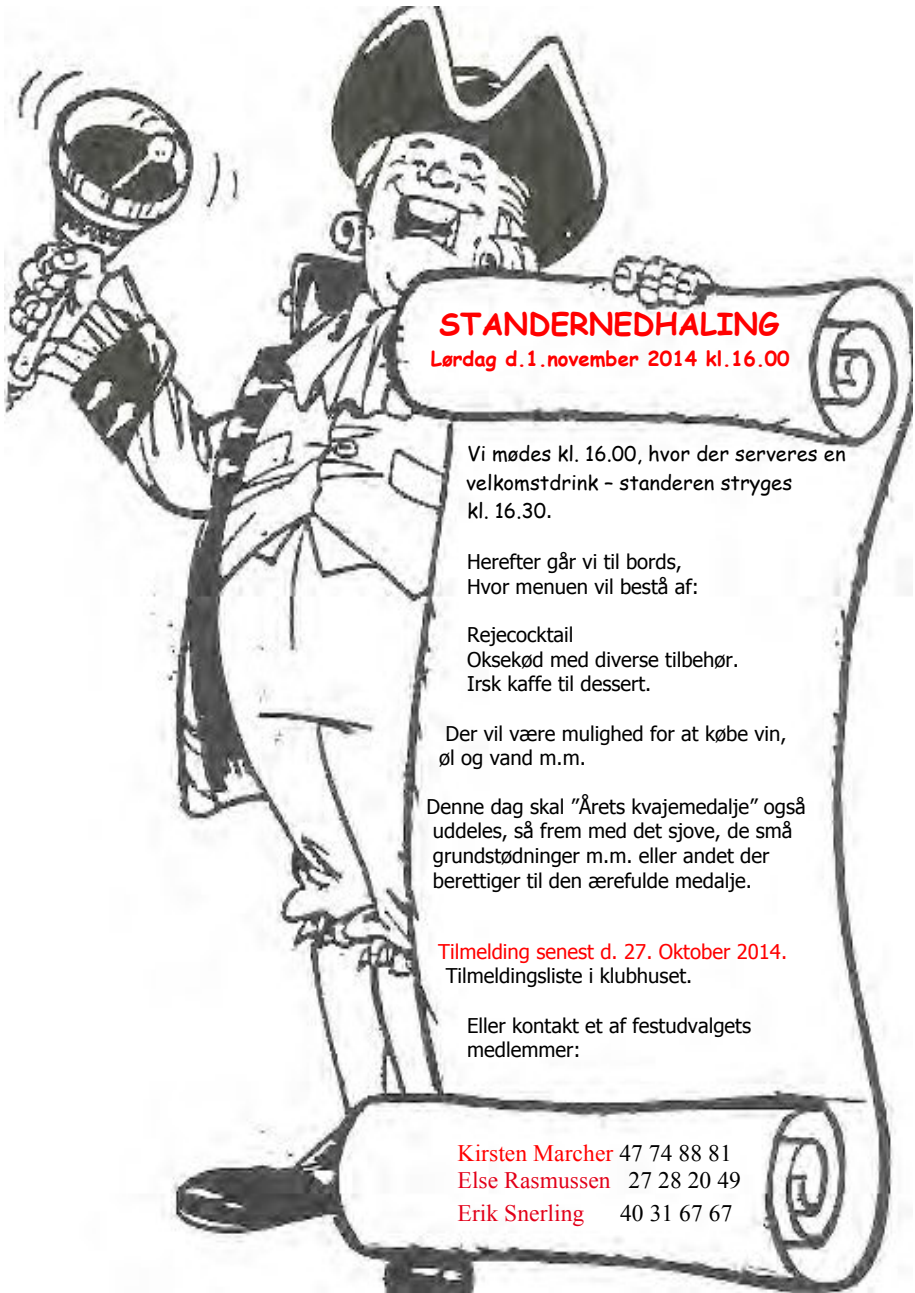 STANDERNEDHALING
Lørdag d.1.november 2014 kl.16.00
Vi mødes kl. 16.00, hvor der serveres en
velkomstdrink – standeren stryges
kl. 16.30.
Herefter går vi til bords,
Hvor menuen vil bestå af:
Rejecocktail
Oksekød med diverse tilbehør.
Irsk kaffe til dessert.
Der vil være mulighed for at købe vin,
øl og vand m.m.
Denne dag skal ”Årets kvajemedalje” også
uddeles, så frem med det sjove, de små
grundstødninger m.m. eller andet der
berettiger til den ærefulde medalje.
Tilmelding senest d. 27. Oktober 2014.
Tilmeldingsliste i klubhuset.
Eller kontakt et af festudvalgets
medlemmer:
Kirsten Marcher 47 74 88 81
Else Rasmussen 27 28 20 49
Erik Snerling 40 31 67 67